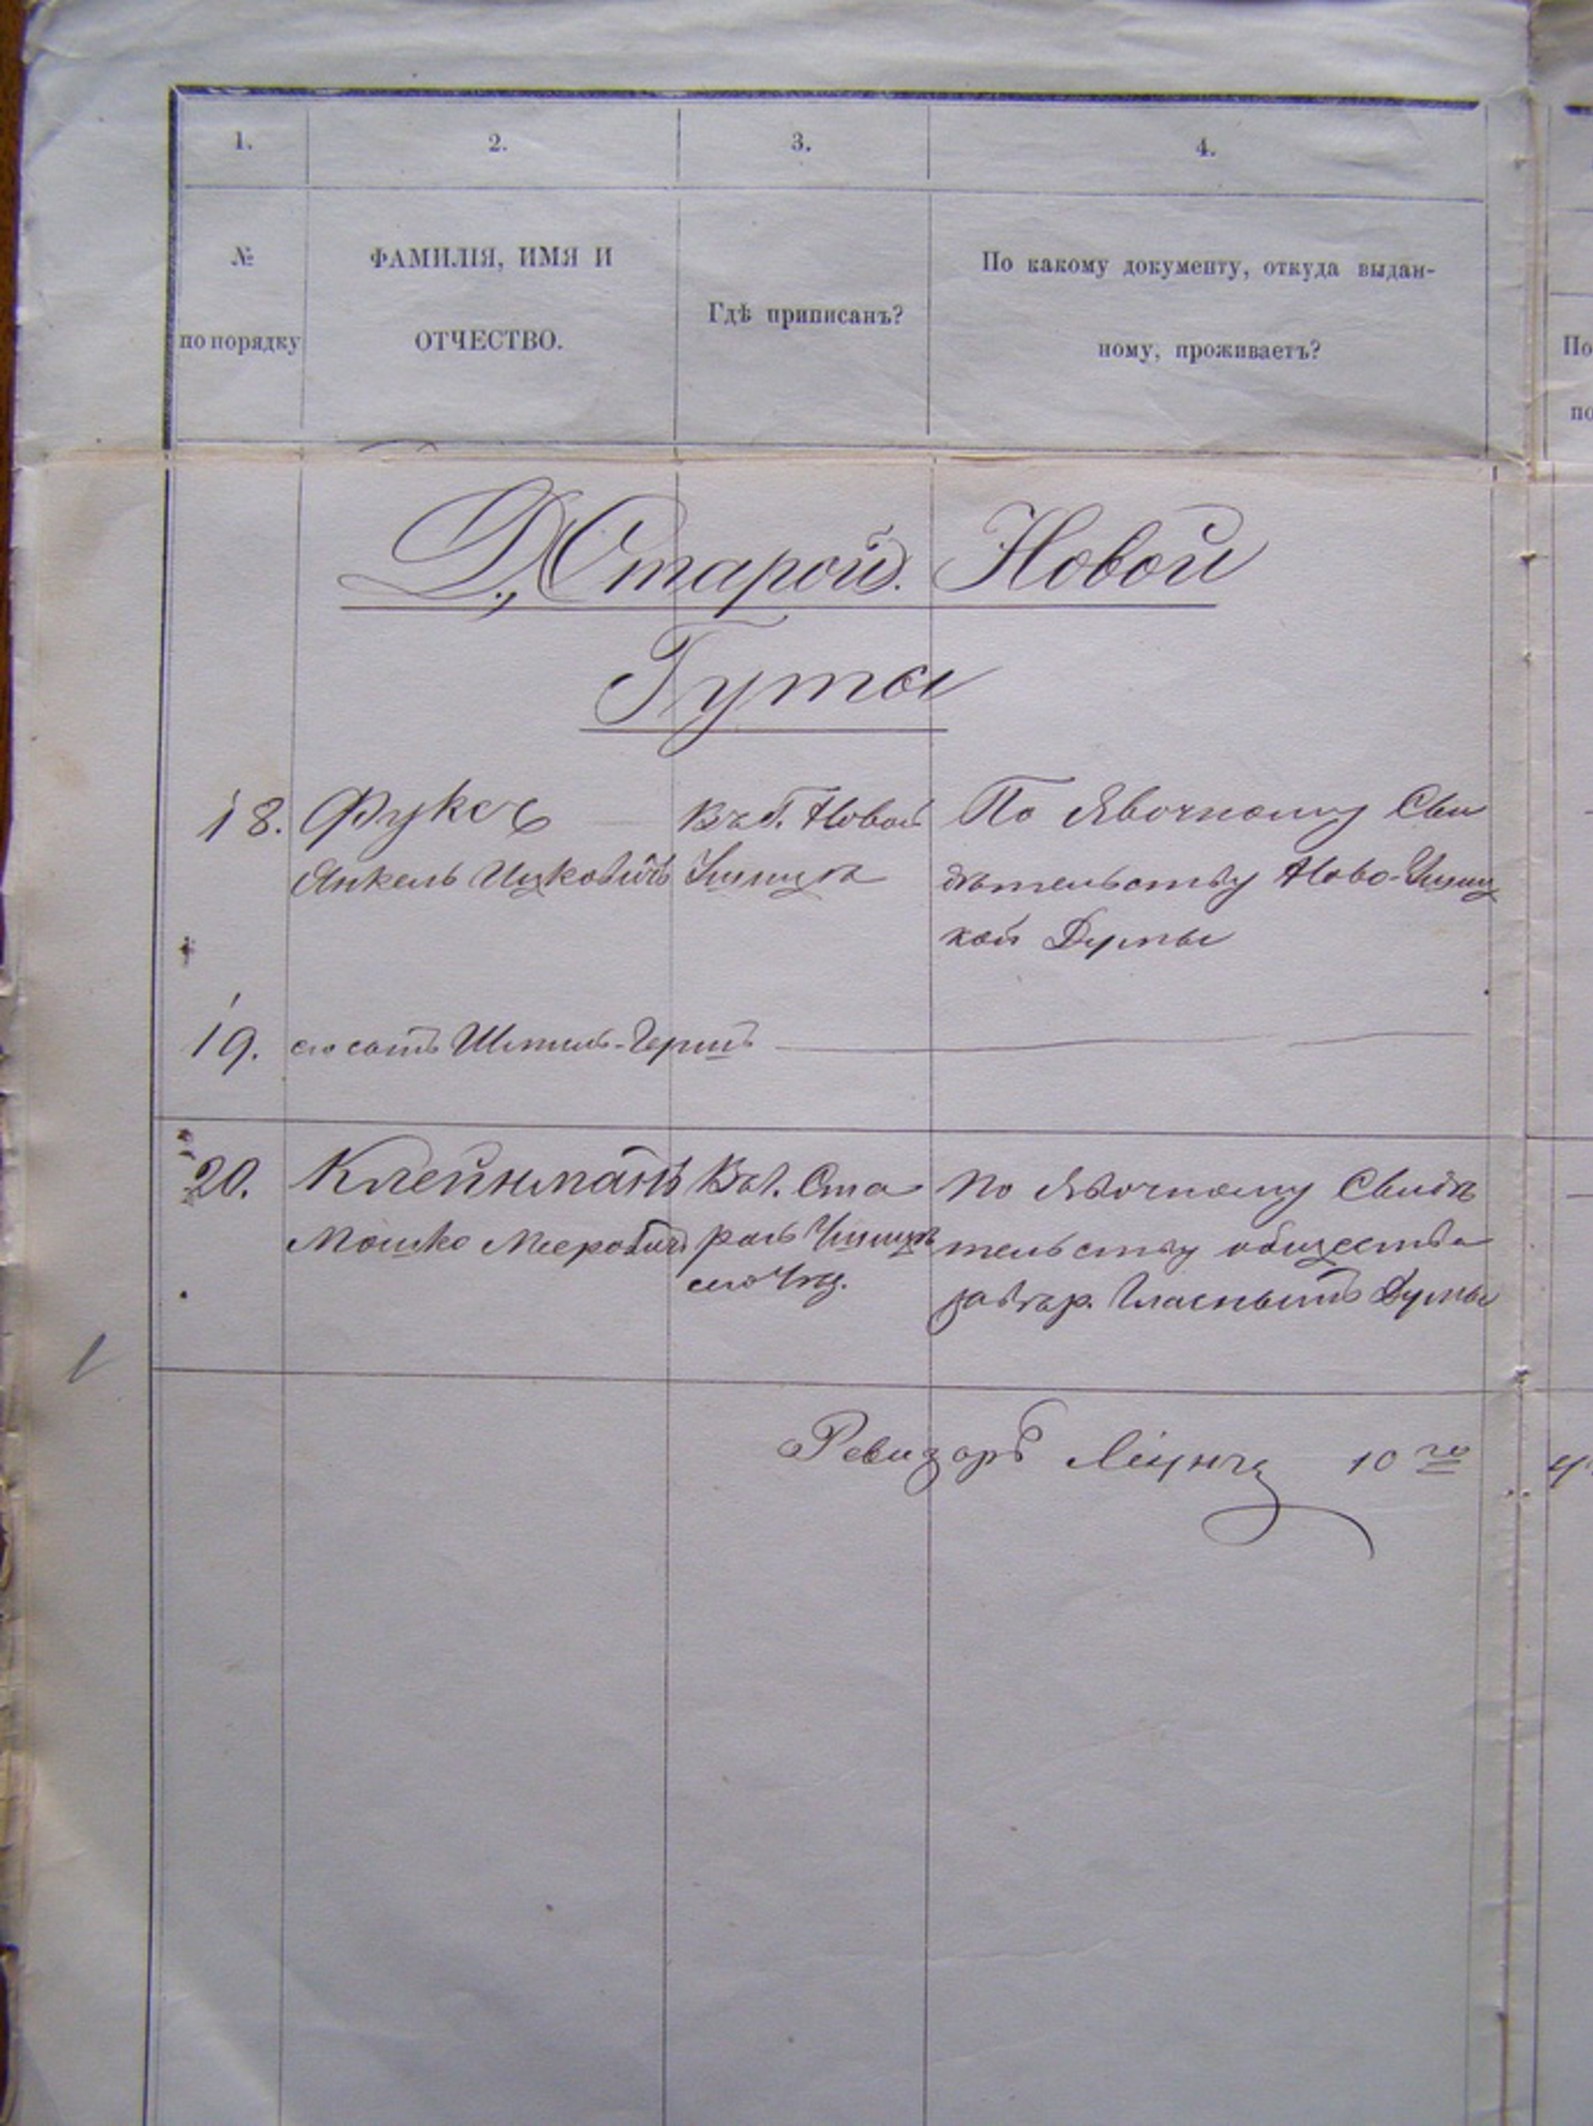 1. 2. 3. 4.
№ по порядку
ФАМИЛІЯ, ИМЯ И
ОТЧЕСТВО.
Гдѣ приписанъ?
По какому документу, откуда выдан-
ному, проживаетъ?
По
по
Д. Старой. Новой
Гута
18. Фуксъ
Янкель Ицковичъ
Въ г. Новой
Ушицѣ
По явочному Сви
дѣтельству Ново-Ушиц
кой Думы
19. Шмиль-Герш
20. Клейнманъ
Мошко Мееровичъ
Въ г. Ста
рой Ушицѣ
по явочному Свидѣ
тельству общества
Гласнымъ Думы
Ревизоръ 10 го